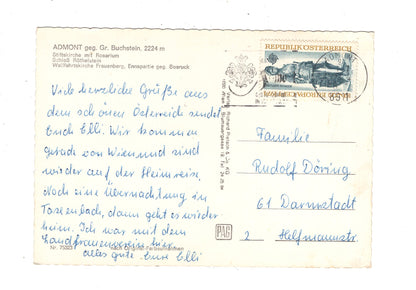 ADMONT geg. Gr. Buchstein, 2224 m
Stiftskirche mit Rosarium
Schloß Röthelstein
Wallfahrtskirche Frauenberg, Ennspartie geg. Bosruck
Viele herzliche Grüße aus
dem schönen Österreich sendet
Euch Elli. Wir kommen
gerade von Wien und sind
wieder auf der Heimreise.
Noch eine Übernachtung in
dann geht es wieder
heim. Ich war mit dem
Landfrauenverein hier.
alles gute Eure Elli
Nach Original-Farbaufnahmen
PAG
REPUBLIK ÖSTERREICH
Familie
Rudolf Döring
61 Darmstadt
2